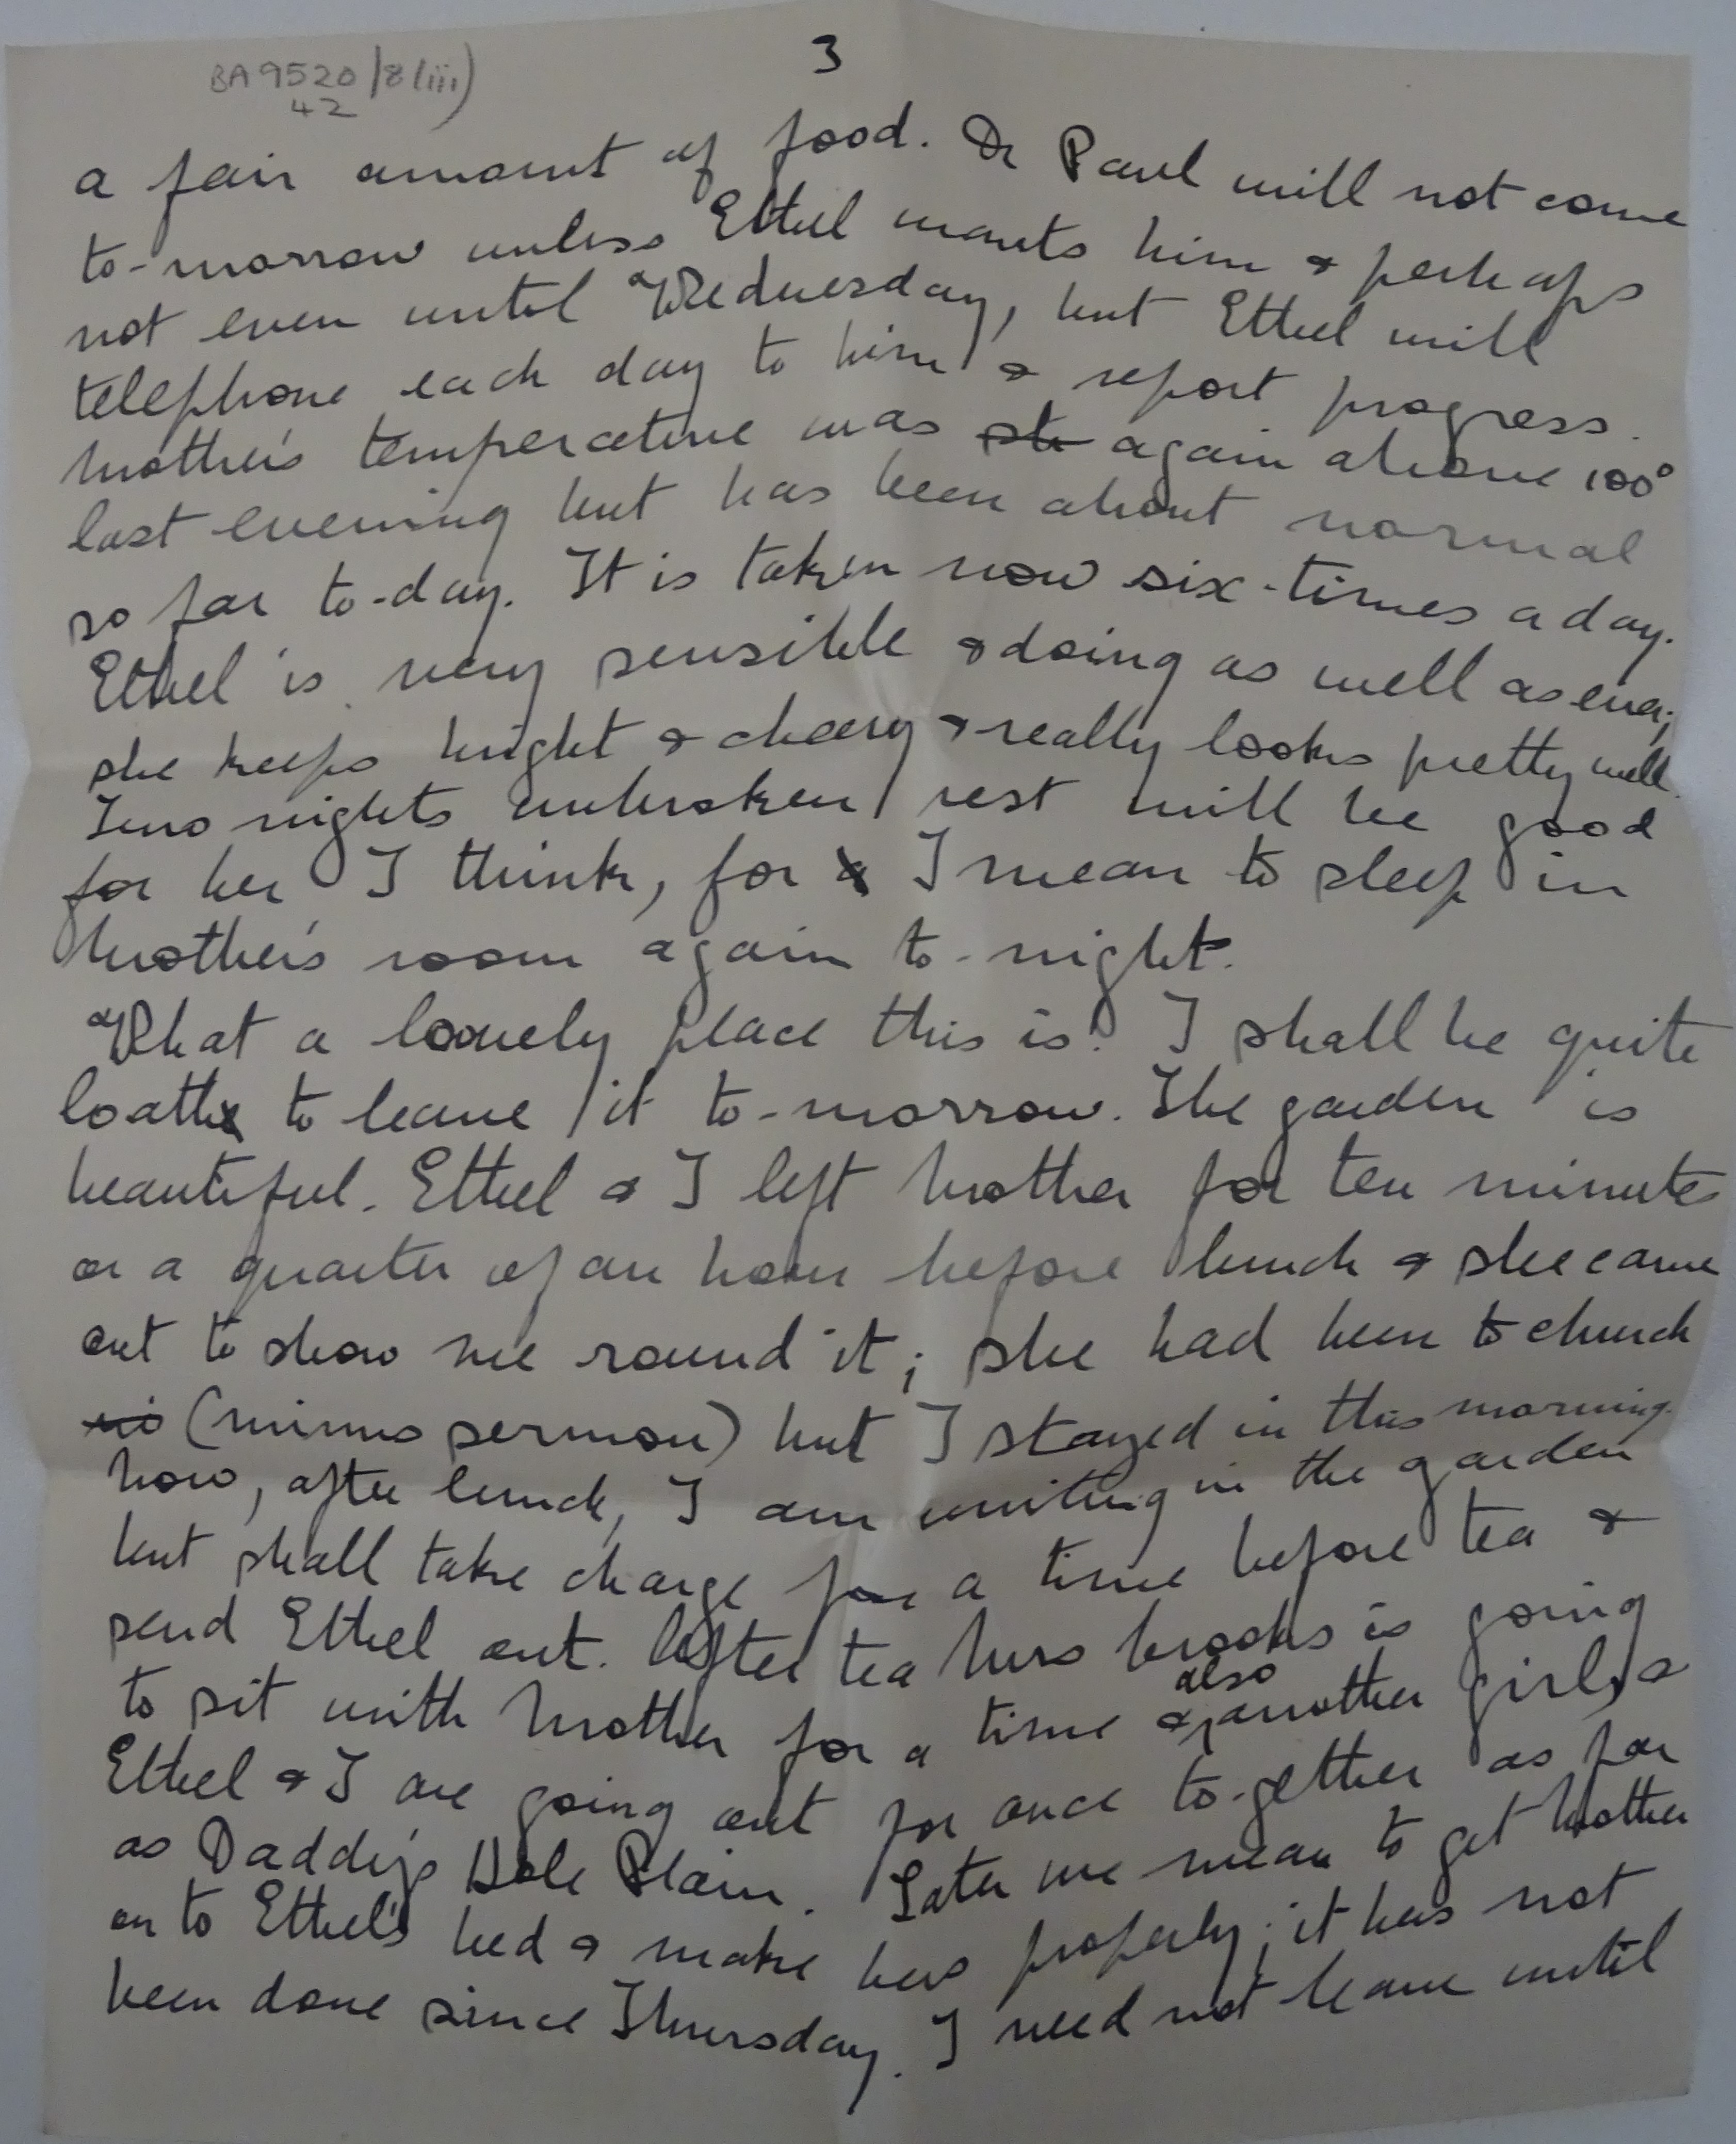 BA9520/8(iii)
42
3
a fair amount of food. Dr Paul will not come
to-morrow unless Ethel wants him & perhaps
not even until Wednesday, but Ethel will
telephone each day to him & report progress.
Mother's temperature was st again above 100°
last evening but has been about normal
so far to-day. It is taken now six-times a day.
Ethel is very sensible & doing as well as ever;
she keeps bright & cheery & really looks pretty well.
Two nights unbroken rest will be good
for her I think, for I mean to sleep in
Mother's room again to-night.
What a lovely place this is! I shall be quite
loath to leave it to-morrow. The garden is
beautiful. Ethel & I left Mother for ten minutes
or a quarter of an hour before lunch & she came
out to show me round it; she had been to church
(minus sermon) but I stayed in this morning.
Now, after lunch, I am writing in the garden
but shall take charge for a time before tea &
send Ethel out. After tea Mrs Brooks is going
to sit with Mother for a time & also another girl, &
Ethel & I are going out for once to-gether as far
as Daddy's Hole Plain. Later we mean to get Mother
on to Ethel's bed & make hers properly; it has not
been done since Thursday. I need not leave until